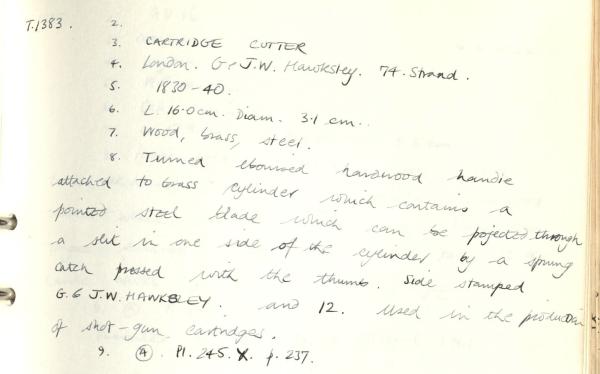 T.1383. 2.
3. CARTRIDGE CUTTER
4. London. G & J.W. Hawksley. 74. Strand.
5. 1830-40.
6. L. 16.0cm. Diam. 3.1 cm..
7. Wood, brass, steel.
8. Turned ebonised hardwood handle
attached to brass cylinder which contains a
pointed steel blade which can be pojected through
a slit in one side of the cylinder by a sprung
catch pressed with the thumb. Side stamped
G. & J.W. HAWKSLEY. and 12. Used in the production
of shot-gun cartridges.
9. (A). Pl. 245. X. p. 237.